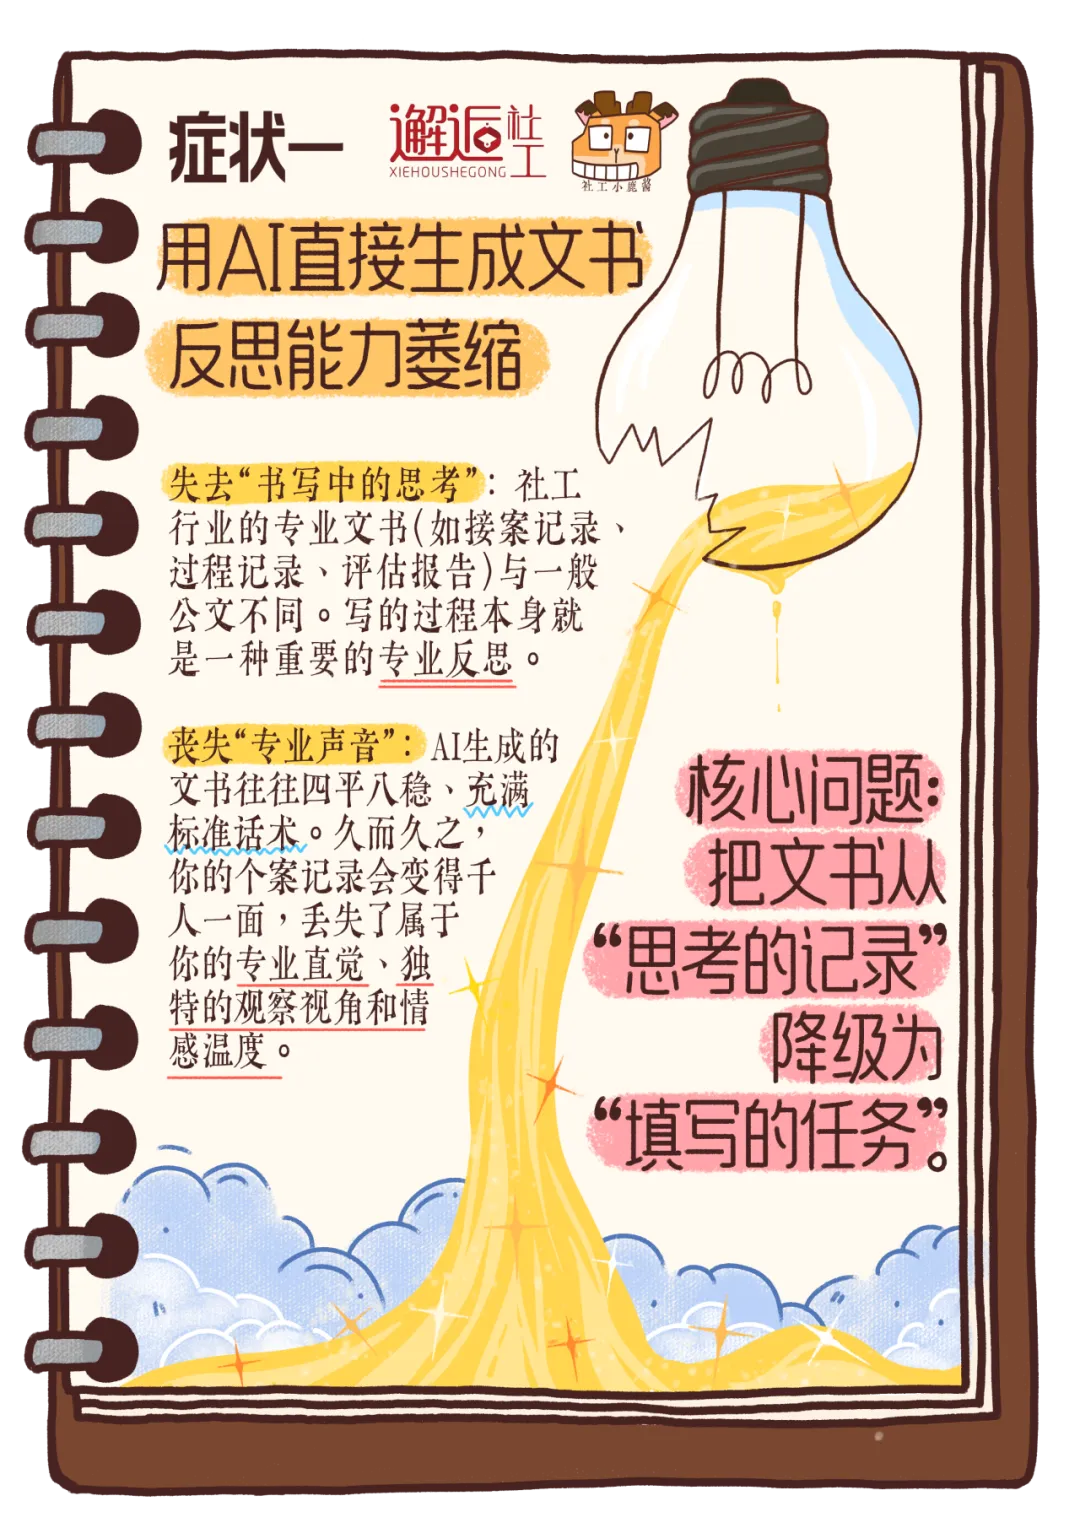 症状一
邂逅社工
XIEHOUSHEGONG
社工小鹿酱
用AI直接生成文书
反思能力萎缩
失去“书写中的思考”：社工
行业的专业文书(如接案记录、
过程记录、评估报告)与一般
公文不同。写的过程本身就
是一种重要的专业反思。
丧失“专业声音”：AI生成的
文书往往四平八稳、充满
标准话术。久而久之，
你的个案记录会变得千
人一面，丢失了属于
你的专业直觉、独
特的观察视角和情
感温度。
核心问题：
把文书从
“思考的记录”
降级为
“填写的任务”。